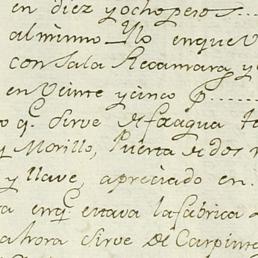 en diez y ocho pesos
al mismo Yo en que V
con sala Recamara y
en Veinte y cinco p
o q. Sirve de fragua
y Morillo, Puerta de dos
y llave, apreciado en.
a enq. estava la fabrica
ahora Sirve de Carpint